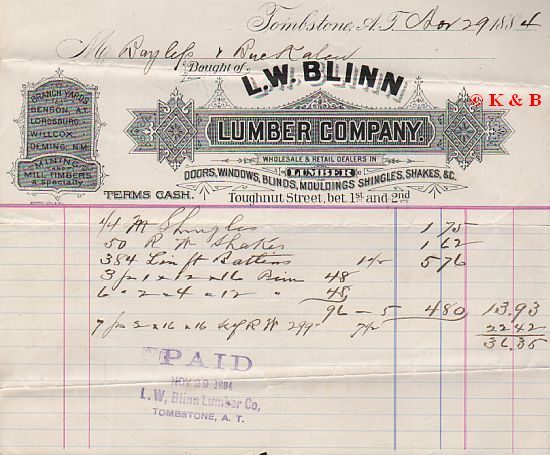 Tombstone, A.T. Nov 29 1884
M Bayless & Buckalew
Bought of
L.W. BLINN
© K & B
LUMBER COMPANY.
WHOLESALE & RETAIL DEALERS IN
LUMBER
DOORS, WINDOWS, BLINDS, MOULDINGS SHINGLES, SHAKES, &C.
BRANCH YARDS
BENSON, A.T.
LORDSBURG,
WILLCOX
DEMING, N.M.
MINING
AND
MILL TIMBERS
a specialty
TERMS CASH.
Toughnut Street, bet. 1st and 2nd
1/4 M Shingles 1 75
50 R W Shakes 1 62
384 Lin ft Battins 1½ 5 76
3 pcs 1 x 12 x 16 48
6 " 2 x 4 x 12 " 48
96 - 5 4 80 13.93
7 pcs 2 x 16 x 16 R W 299 7½ 22 42
36.35
PAID
NOV 29 1884
L. W. Blinn Lumber Co,
TOMBSTONE, A. T.